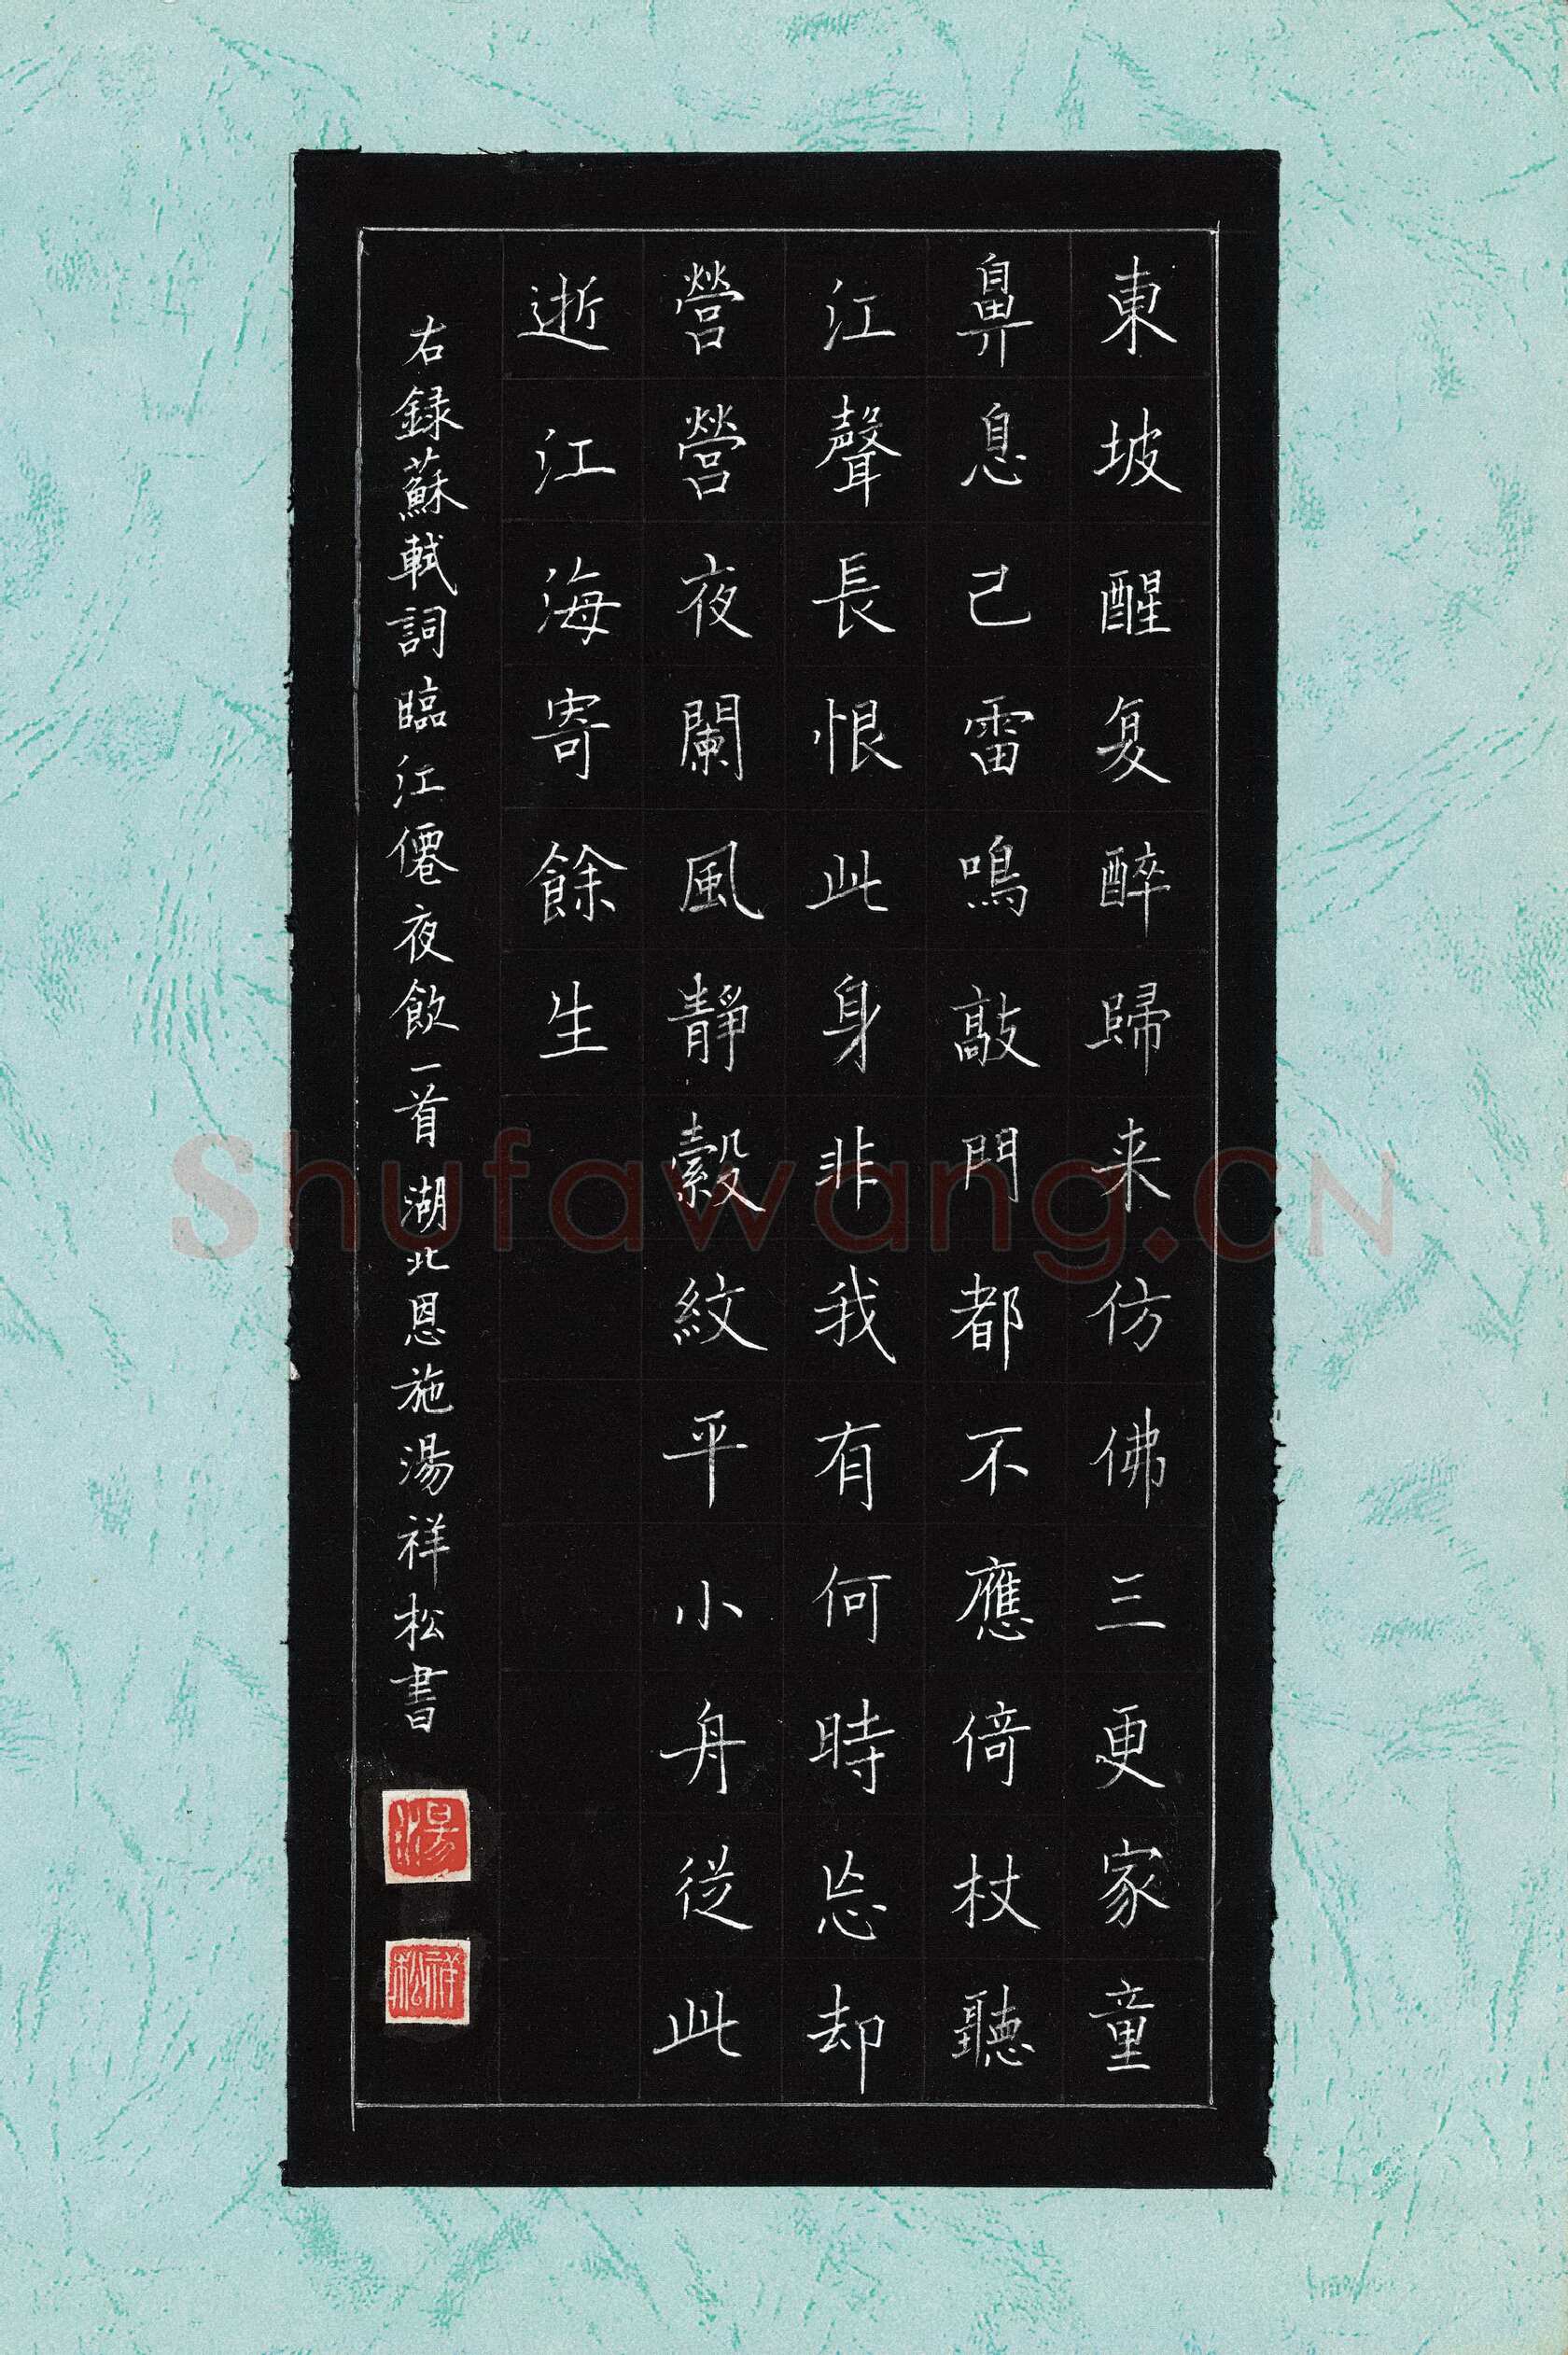 東坡醒复醉歸来仿佛三更家童
鼻息己雷鳴敲門都不應倚杖聽
江聲長恨此身非我有何時忘却
營營夜闌風靜縠紋平小舟從此
逝江海寄餘生
右録蘇軾詞臨江僊夜飲一首湖北恩施湯祥松書
湯
祥松
Shufawang.CN